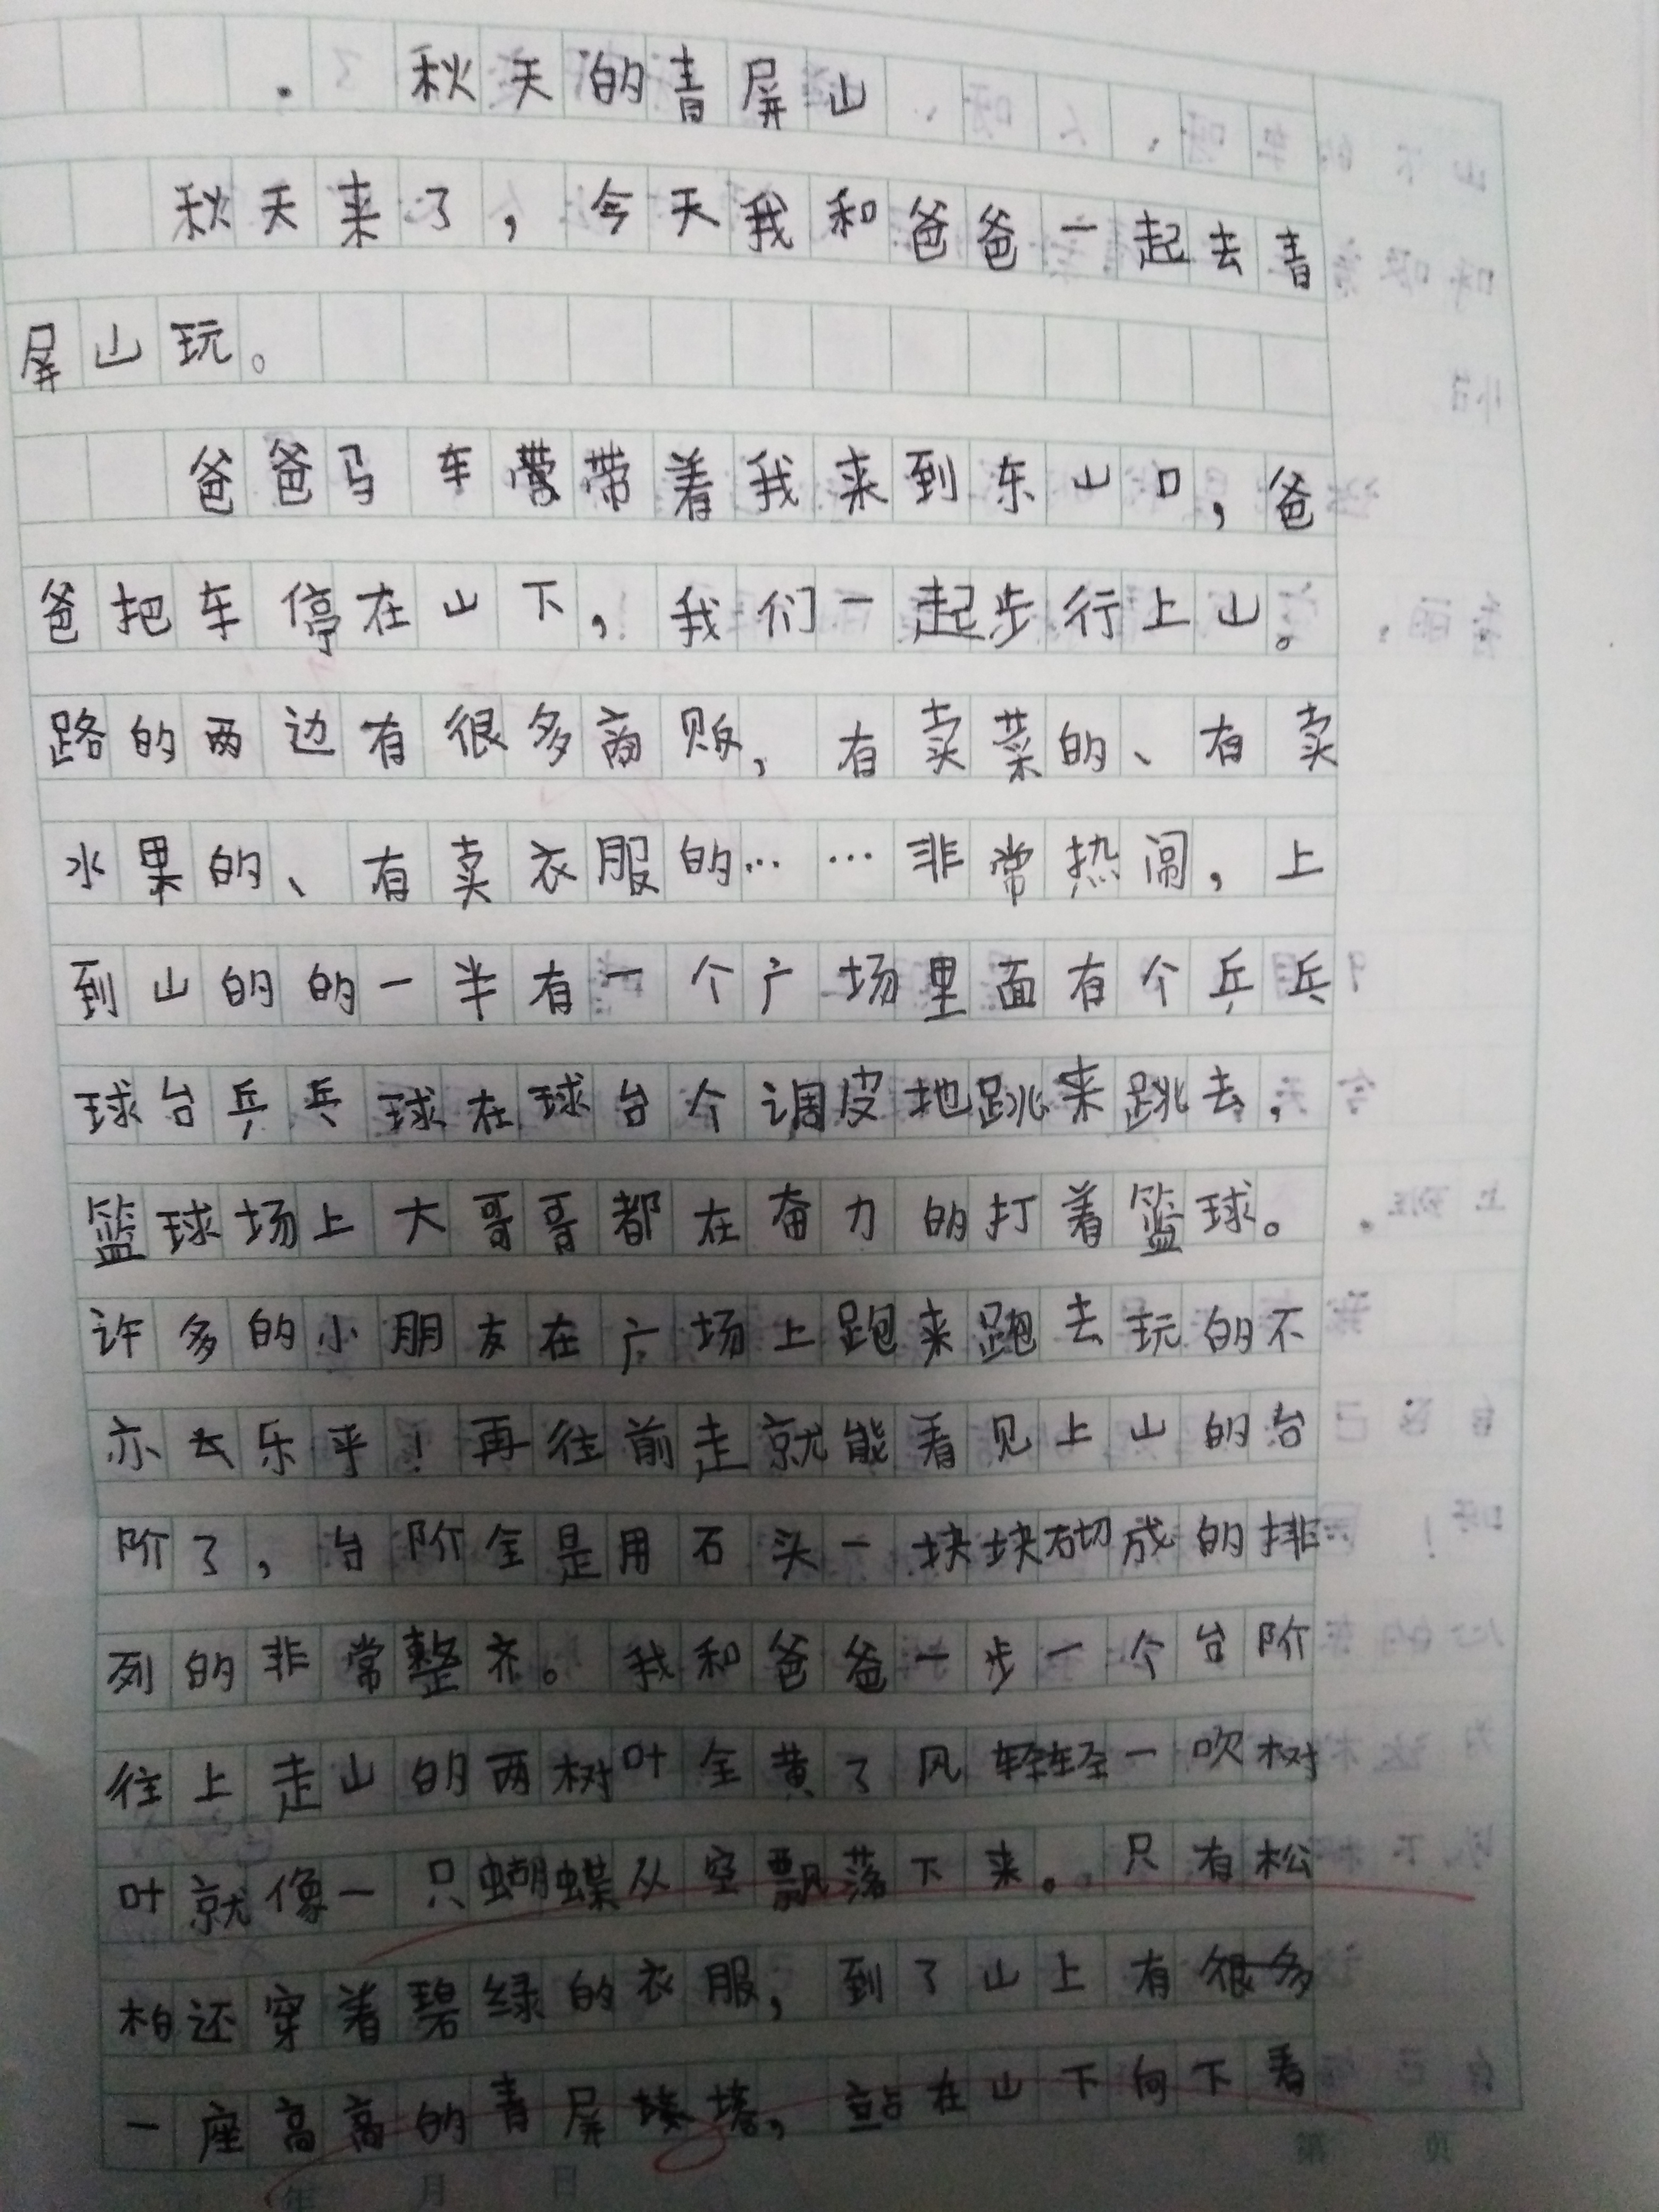 秋天的青屏山
秋天来了，今天我和爸爸一起去青
屏山玩。
爸爸马车带着我来到东山口，爸
爸把车停在山下，我们一起步行上山。
路的两边有很多商贩，有卖菜的、有卖
水果的、有卖衣服的……非常热闹，上
到山的的一半有一个广场里面有个乒乓
球台乒乓球在球台个调皮地跳来跳去，
篮球场上大哥哥都在奋力的打着篮球。
许多的小朋友在广场上跑来跑去玩的不
亦去乐乎！再往前走就能看见上山的台
阶了，台阶全是用石头一块块砌成的排
列的非常整齐。我和爸爸一步一个台阶
往上走山的两树叶全黄了风轻轻一吹树
叶就像一只蝴蝶从空飘落下来。只有松
柏还穿着碧绿的衣服，到了山上有很多
一座高高的青屏塔，站在山下向下看
年 月 日
第 页